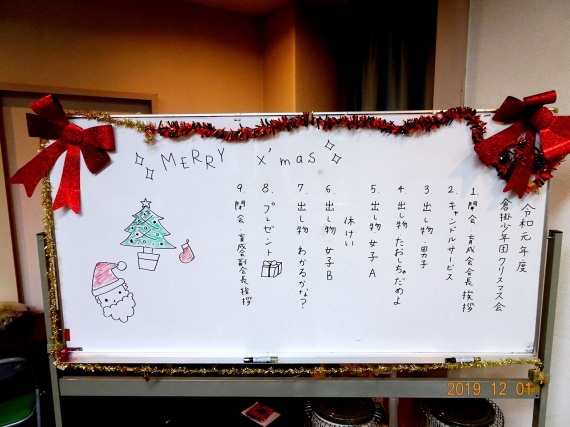 MERRY X'mas
令和元年度
倉掛少年団 クリスマス会
1. 開会・育成会会長 挨拶
2. キャンドルサービス
3. 出し物 男子
4. 出し物 たおしちゃだめよ
5. 出し物 女子 A
休けい
6. 出し物 女子 B
7. 出し物 わかるかな？
8. プレゼント
9. 閉会・育成会副会長 挨拶
2019 12 01